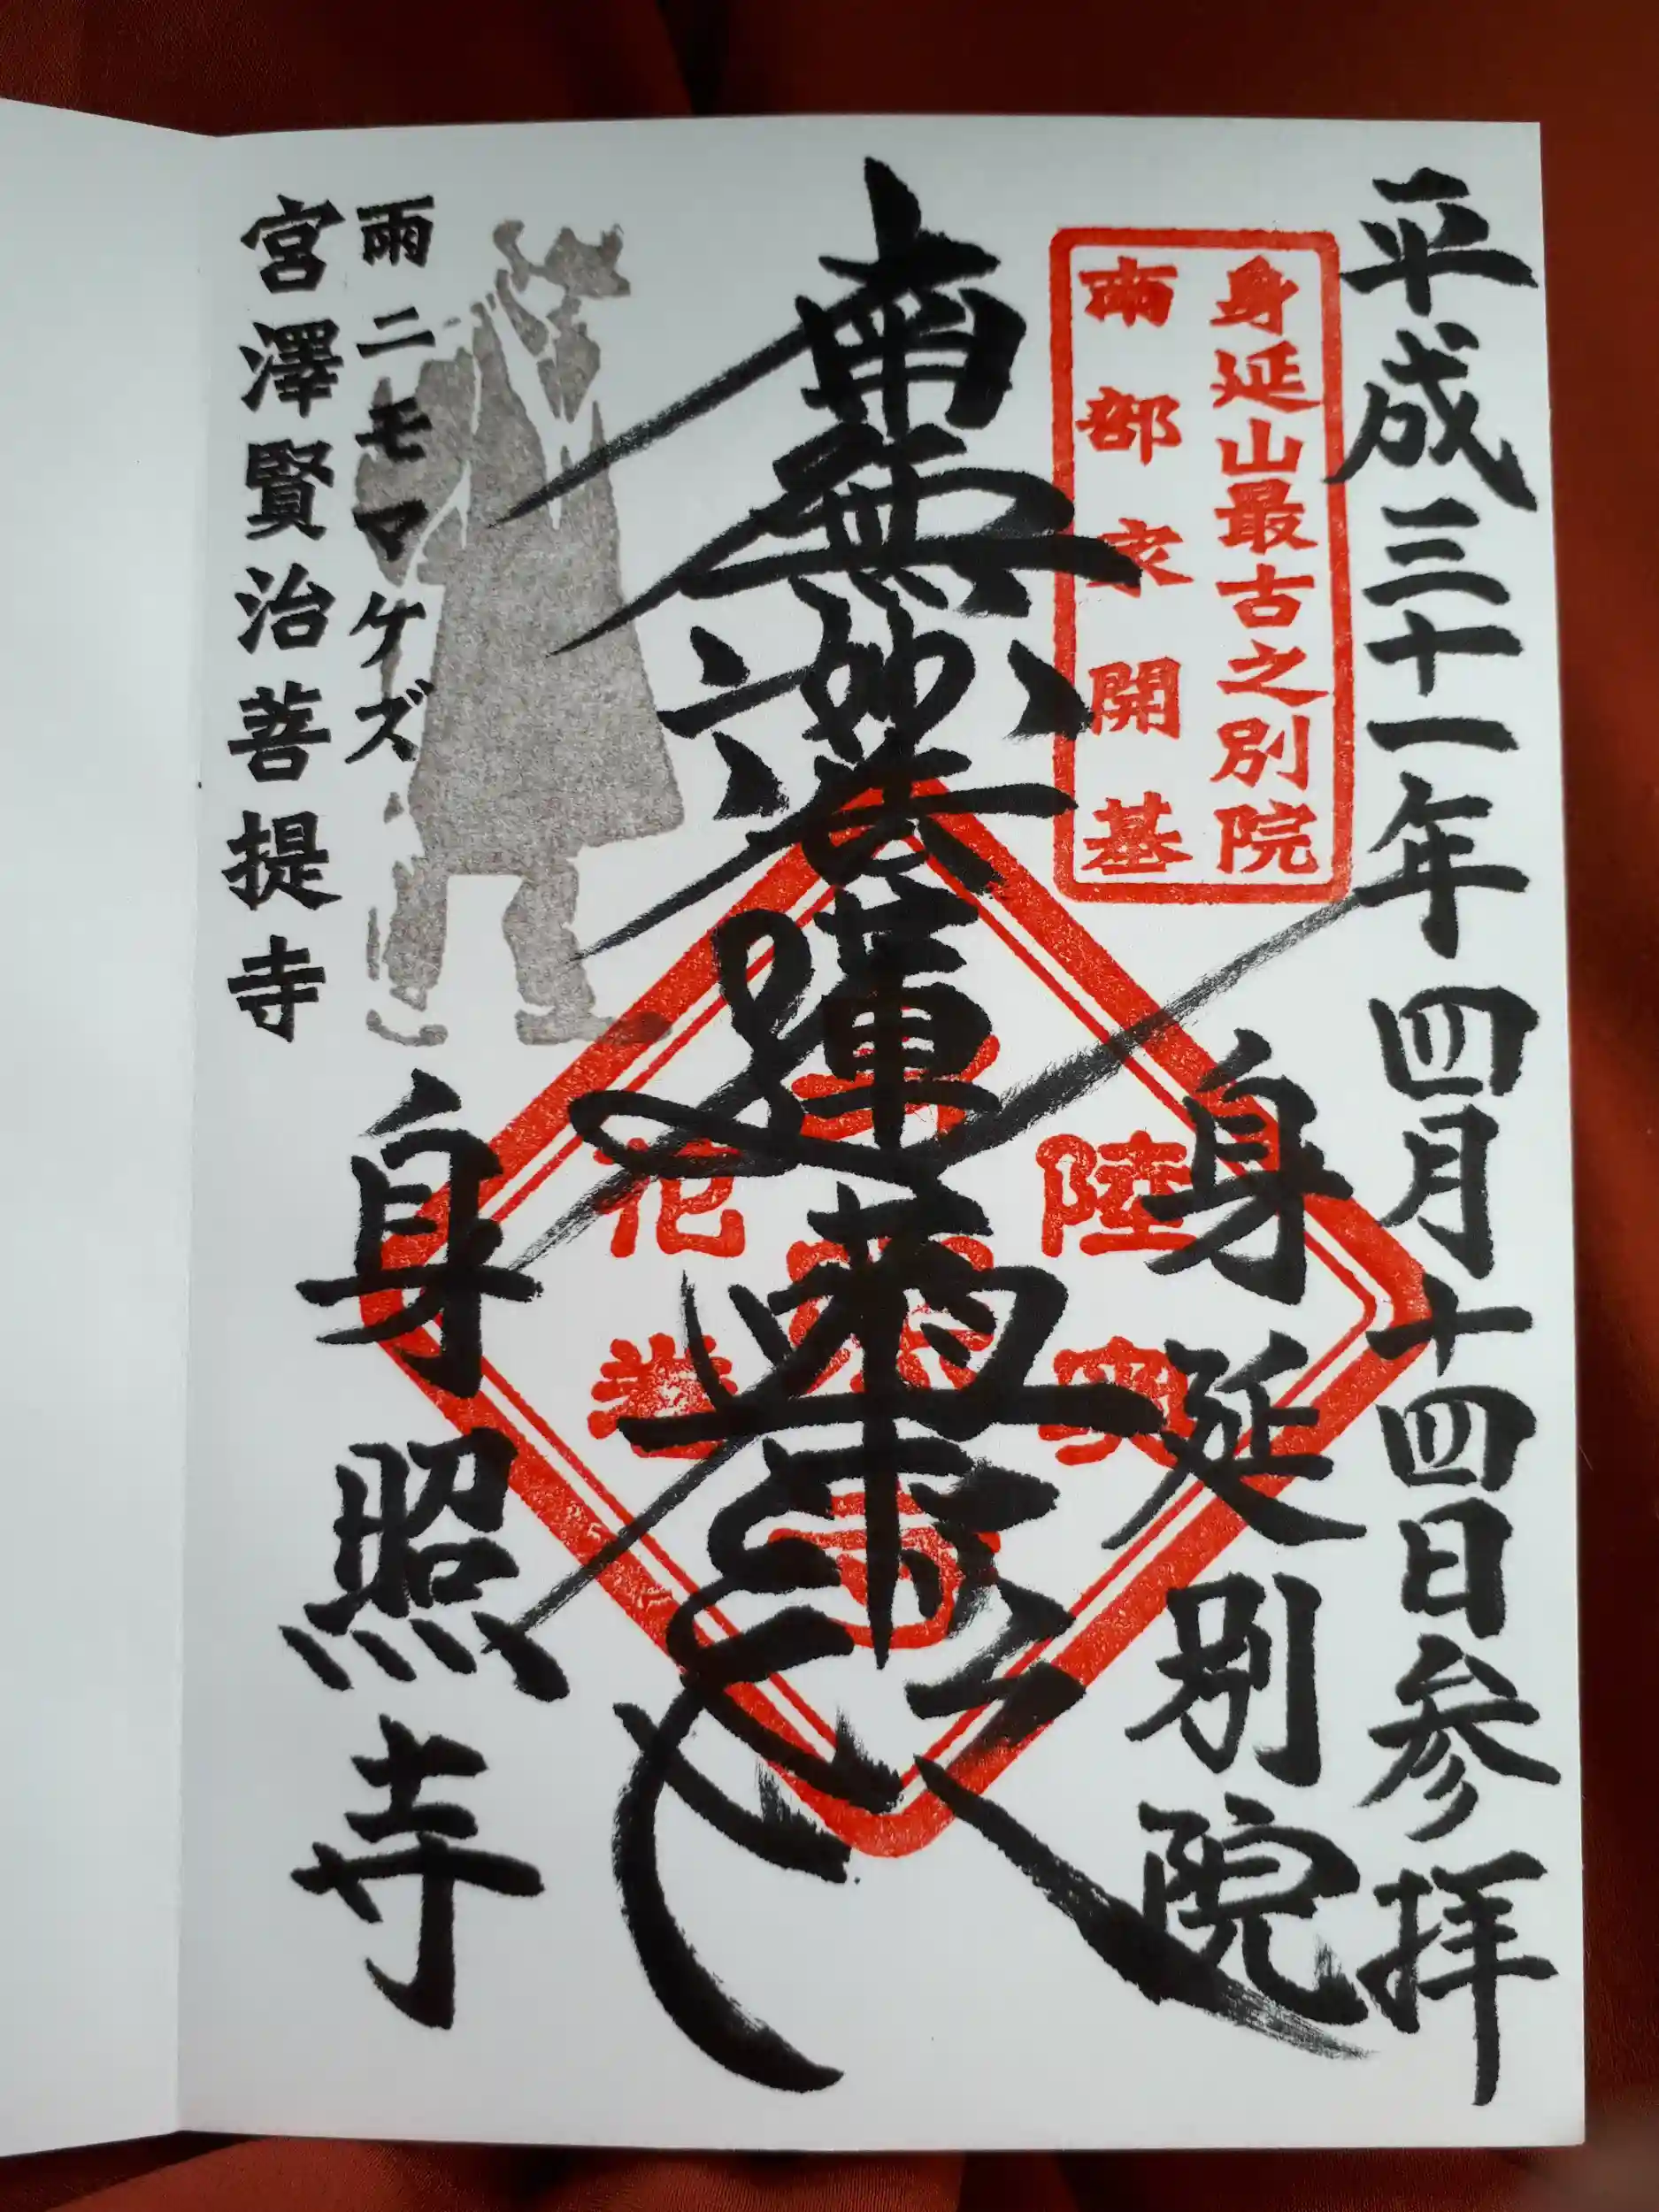 平成三十一年四月十四日参拝
身延山最古之別院
南部家開基
身延別院
南無妙法蓮華経
陸
花巻
雨ニモマケズ
宮澤賢治菩提寺
身照寺